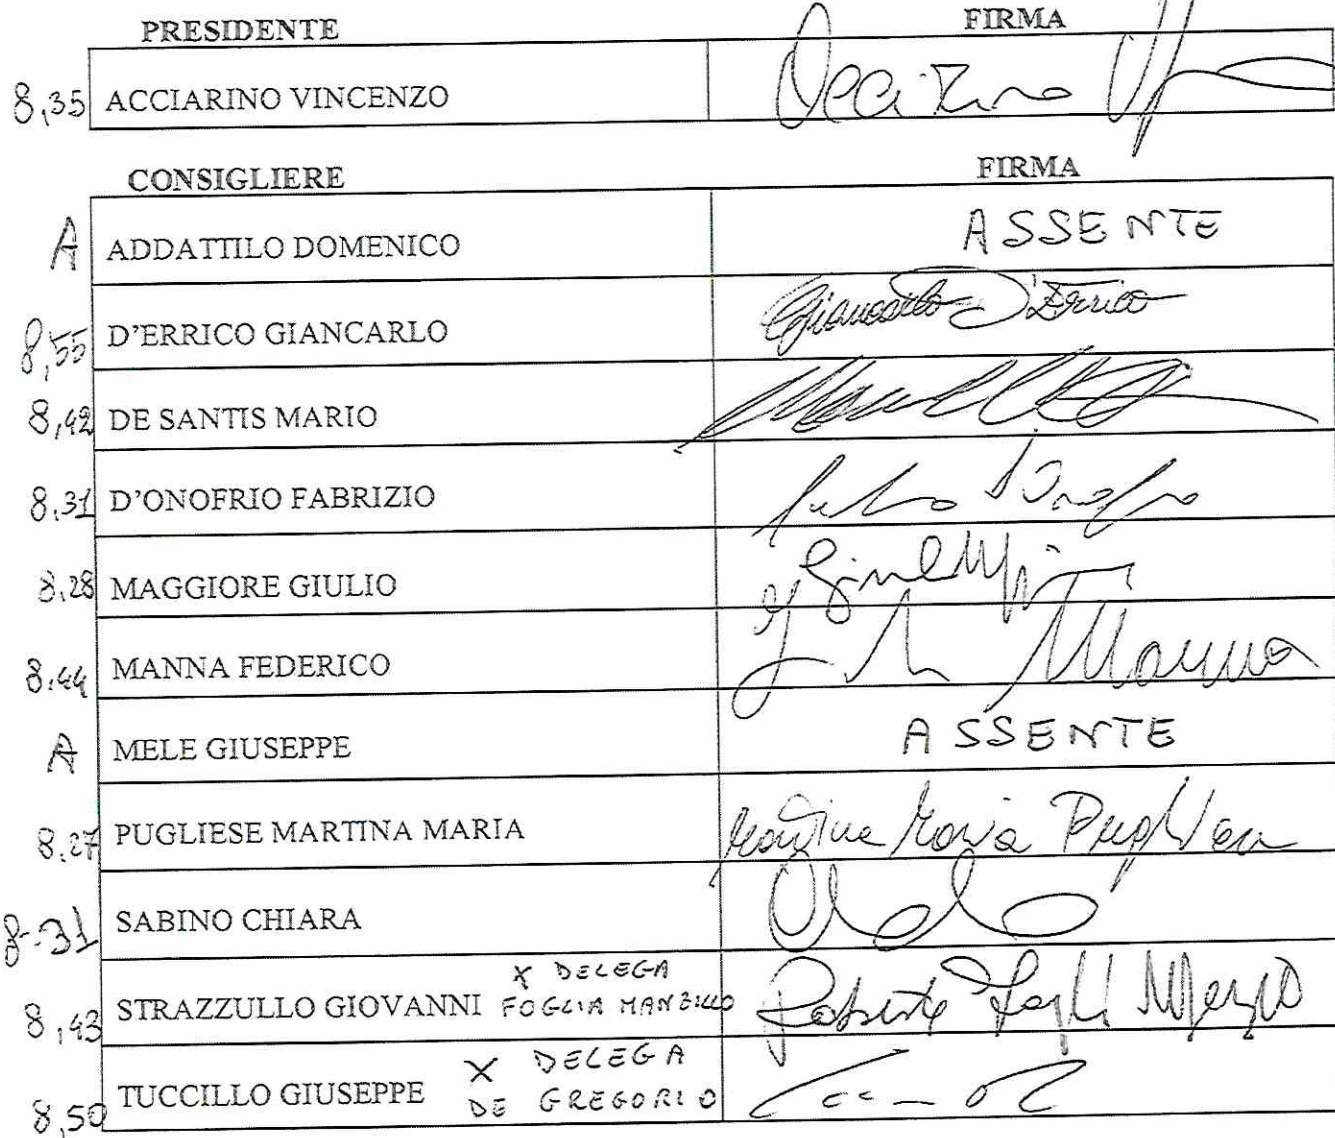 PRESIDENTE FIRMA
8,35 ACCIARINO VINCENZO
CONSIGLIERE FIRMA
A ADDATTILO DOMENICO ASSENTE
8,55 D'ERRICO GIANCARLO Giancarlo D'Errico
8,42 DE SANTIS MARIO
8.31 D'ONOFRIO FABRIZIO
8.28 MAGGIORE GIULIO
8.44 MANNA FEDERICO Manna
A MELE GIUSEPPE ASSENTE
8.27 PUGLIESE MARTINA MARIA Martina Maria Pugliese
8-31 SABINO CHIARA
X DELEGA
8,43 STRAZZULLO GIOVANNI FOGLIA MANZILLO
X DELEGA
8,50 TUCCILLO GIUSEPPE DE GREGORIO